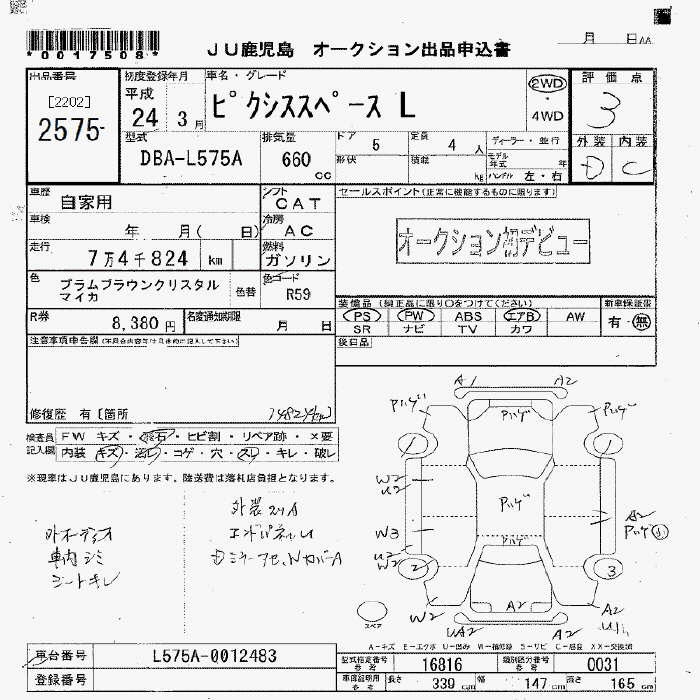 *0017508*
JU鹿児島 オークション出品申込書
月 日 AA
出品番号
[2202]
2575-
初度登録年月
平成
24 3月
車名・グレード
ピクシススペース L
2WD
・
4WD
評価点
3
外装 内装
D C
型式
DBA-L575A
排気量
660
cc
ドア 5
定員 4 人
ディーラー・並行
形状
積載 kg
モデル年式 年
ハンドル 左・右
車歴
自家用
シフト
CAT
車検
年 月( 日)
冷房
AC
走行
7万4千824 km
燃料
ガソリン
色
プラムブラウンクリスタル
マイカ
色替
色コード
R59
セールスポイント(正常に機能するものに限ります)
オークション初デビュー
装備品(純正品に限り○をつけてください)
PS PW ABS エアB AW
SR ナビ TV カワ
新車保証書
有・無
後日品
R券
8,380円
名変通知期限
月 日
注意事項申告欄
修復歴 有〔箇所
検査員
記入欄
FW キズ・飛石・ヒビ割・リペア跡・X要
内装 キズ・汚レ・コゲ・穴・スレ・キレ・破レ
※現車はJU鹿児島にあります。陸送費は落札店負担となります。
外オーディオ
車内シミ
シートキレ
A1
A2
Pハゲ
Pハゲ
Pハゲ
1
1
W2
U2
Pハゲ
A2
Pハゲ
W3
Pハゲ
U2
W2
2
3
W2
A2
A2
UA2
A2
スペア
A-キズ E-エクボ U-凹み W-補修跡 S-サビ C-腐蝕 XX-交換済
車台番号
L575A-0012483
登録番号
型式指定番号
参考
16816
類別区分番号
参考
0031
車庫証明用
参考
長さ 339 cm 幅 147 cm 高さ 165 cm